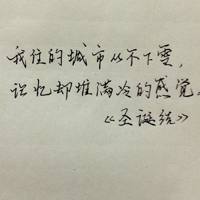 我住的城市从不下雪，
记忆却堆满冷的感觉。
《圣诞结》